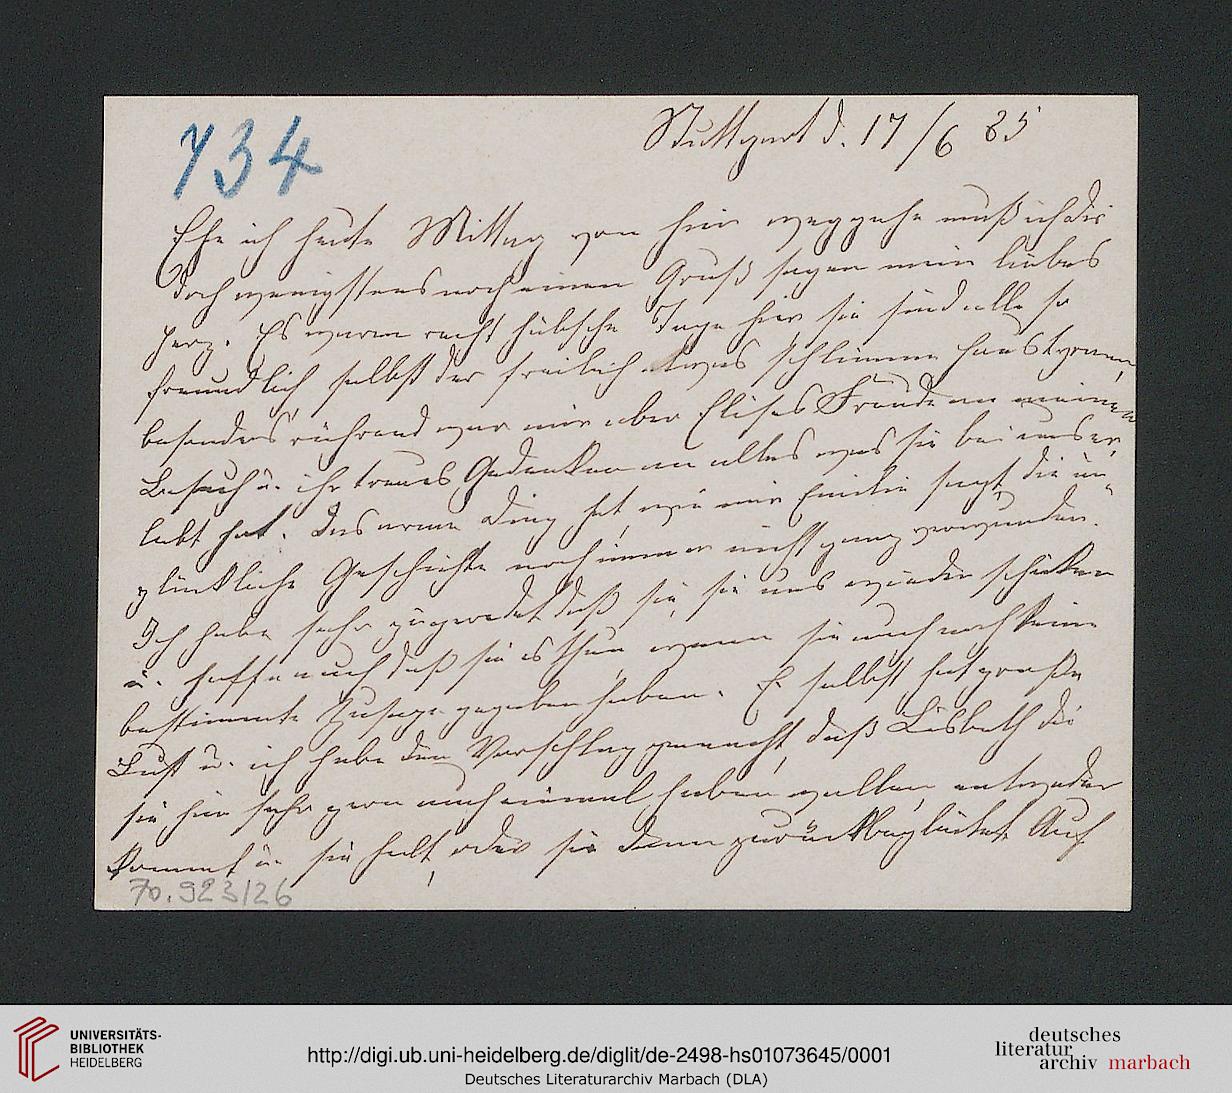 734
Stuttgart d. 17/6 85
Ehe ich heute Mittag von hier weggehe muß ich dir
doch wenigstens noch einen Gruß sagen mein liebes
Herz. Es waren recht hübsche Tage hier sie sind alle so
freundlich selbst der freilich etwas schlimme Haustyrann,
besonders rührend war mir aber Elises Freude an meinem
Besuch u. ihr treues Gedenken an alles was sie bei uns er-
lebt hat. Das arme Ding hat, wie mir Emilie sagt, die un-
glückliche Geschichte noch immer nicht ganz verwunden.
Ich habe sehr zugeredet daß sie sie uns wieder schicken
u. hoffe auch daß sie es thun wenn sie auch noch keine
bestimmte Zusage gegeben haben. E. selbst hat große
Lust u. ich habe den Vorschlag gemacht, daß Lisbeth die
sie hier sehr gern auch einmal haben wollen, entweder
kommt u. sie holt, oder sie dann zurückbegleitet. Auf
70.923/26
UNIVERSITÄTS-
BIBLIOTHEK
HEIDELBERG
http://digi.ub.uni-heidelberg.de/diglit/de-2498-hs01073645/0001
Deutsches Literaturarchiv Marbach (DLA)
deutsches
literatur
archiv marbach